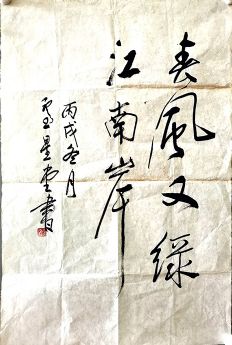 春風又綠
江南岸
丙戌冬月